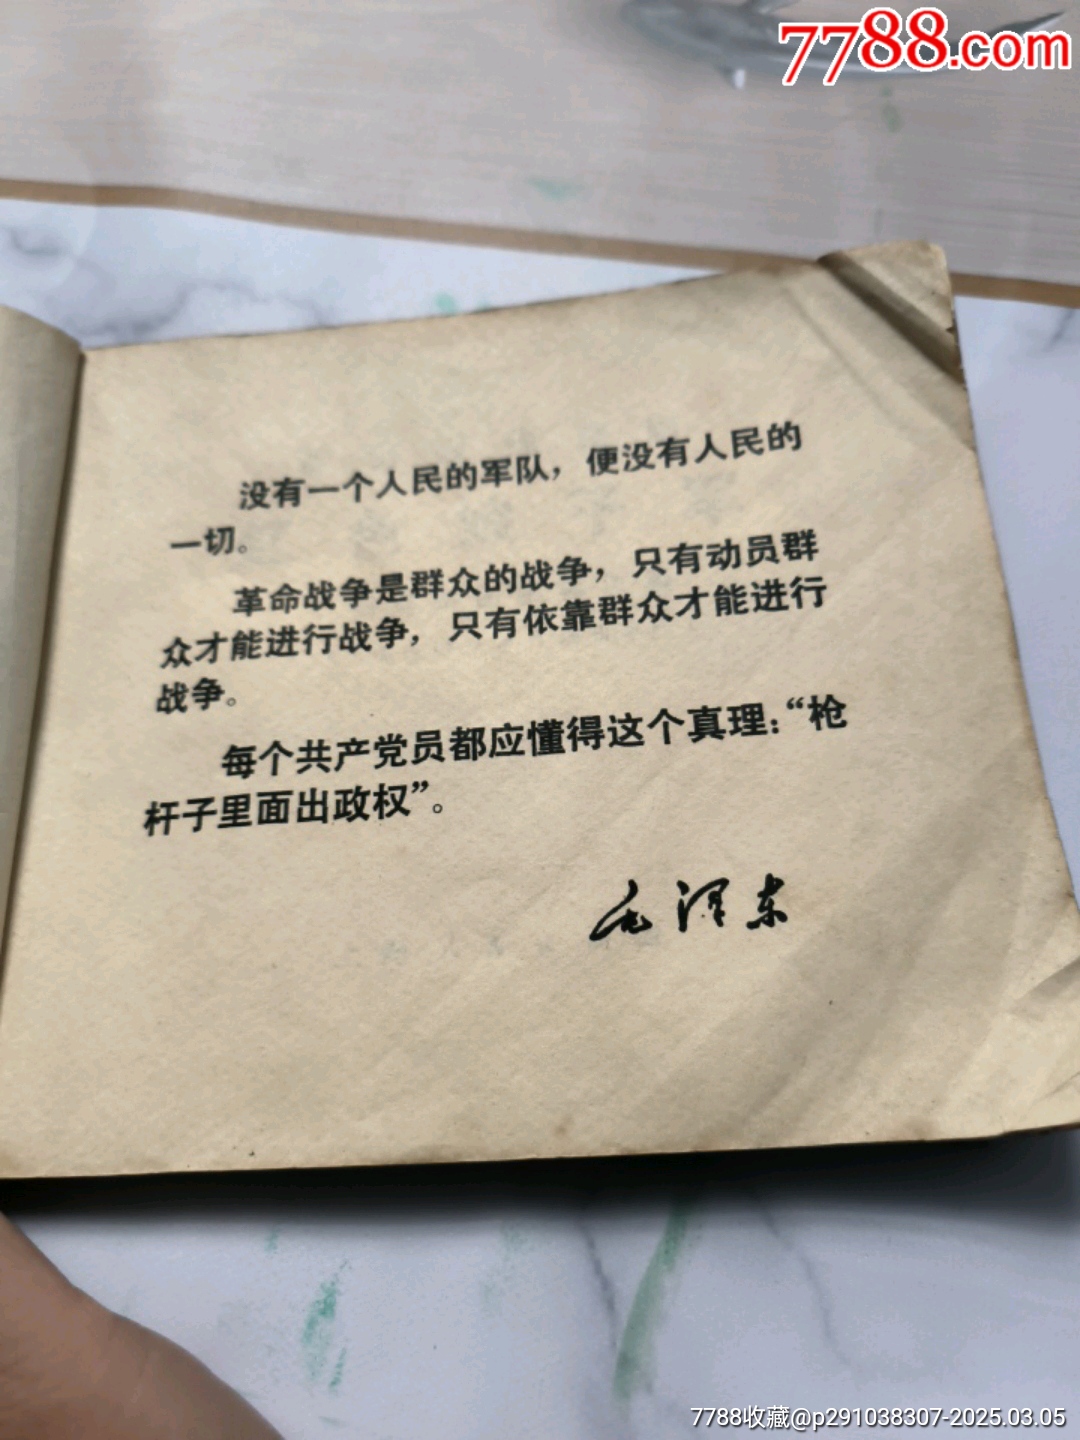 7788.com
没有一个人民的军队，便没有人民的
一切。
革命战争是群众的战争，只有动员群
众才能进行战争，只有依靠群众才能进行
战争。
每个共产党员都应懂得这个真理：“枪
杆子里面出政权”。
毛泽东
7788收藏@p291038307-2025.03.05